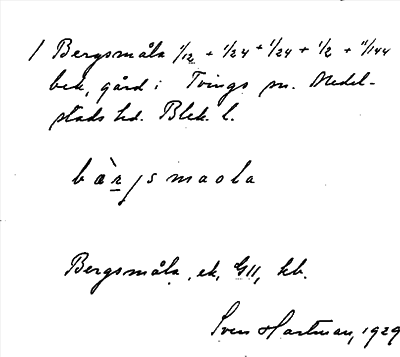 1 Bergsmåla 1/12 + 1/24 + 1/24 + 1/2 + 11/144
bek. gård i Tvings sn. Medel-
stads hd. Blek. l.
bærjsmaola
Bergsmåla, ek. G11, kb.
Sven Hartman, 1929